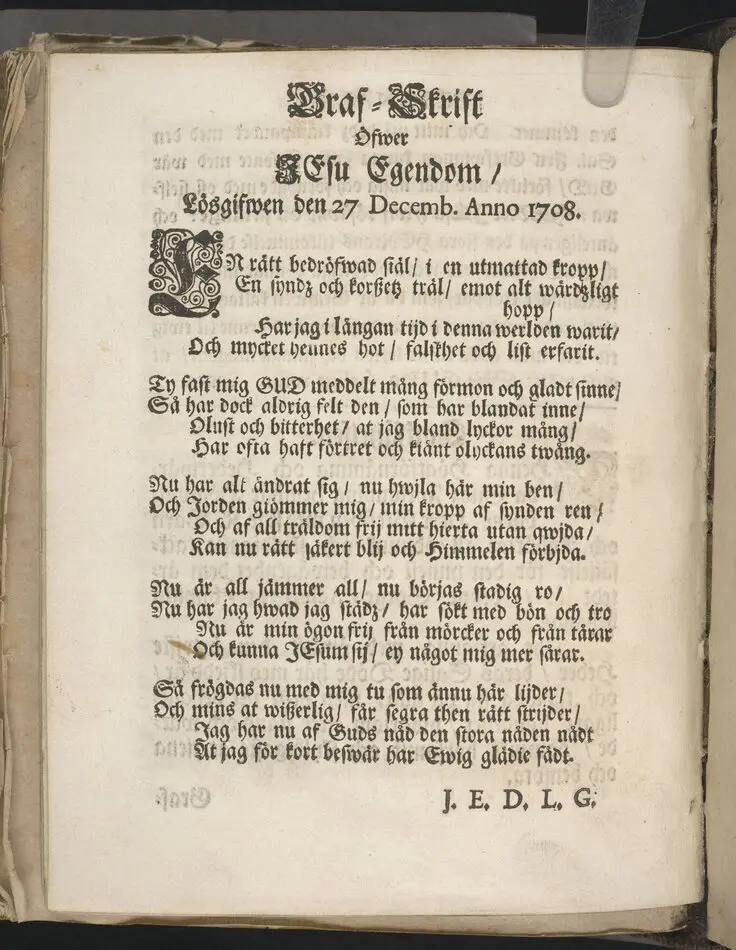 Graf-Skrift
Öfwer
JEsu Egendom /
Lösgifwen den 27 Decemb. Anno 1708.
EN rätt bedröfwad siäl / i en utmattad kropp /
En syndz och korßetz träl / emot alt wärdzligt
hopp /
Har jag i långan tijd i denna werlden warit /
Och mycket hennes hot / falskhet och list erfarit.
Ty fast mig GUD meddelt mång förmon och gladt sinne /
Så har dock aldrig felt den / som har blandat inne /
Olust och bitterhet / at jag bland lyckor mång /
Har ofta haft förtret och kiänt olyckans twång.
Nu har alt ändrat sig / nu hwjla här min ben /
Och Jorden giömmer mig / min kropp af synden ren /
Och af all träldom frij mitt hierta utan qwjda /
Kan nu rätt säkert blij och Himmelen förbjda.
Nu är all jämmer all / nu börjas stadig ro /
Nu har jag hwad jag städz / har sökt med bön och tro
Nu är min ögon frij från mörcker och från tårar
Och kunna JEsum sij / ey något mig mer sårar.
Så frögdas nu med mig tu som ännu här lijder /
Och mins at wißerlig / får segra then rätt strijder /
Jag har nu af Guds nåd den stora nåden nådt
At jag för kort beswär har Ewig glädie fådt.
J. E. D. L. G.